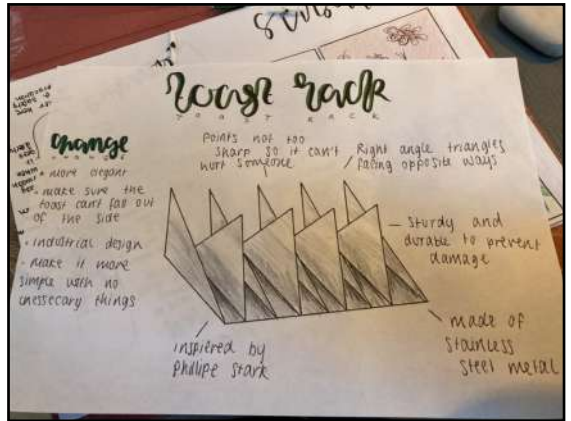 Toast Rack
TOAST RACK
change
CHANGE
• more elegant
- make sure the
toast can't fall out
of the side
• industrial design
- make it more
simple with no
unessecary things
Points not too
sharp so it can't
hurt someone
Right angle triangles
facing opposite ways
sturdy and
durable to prevent
damage
made of
stainless
steel metal
inspired by
Phillipe Stark